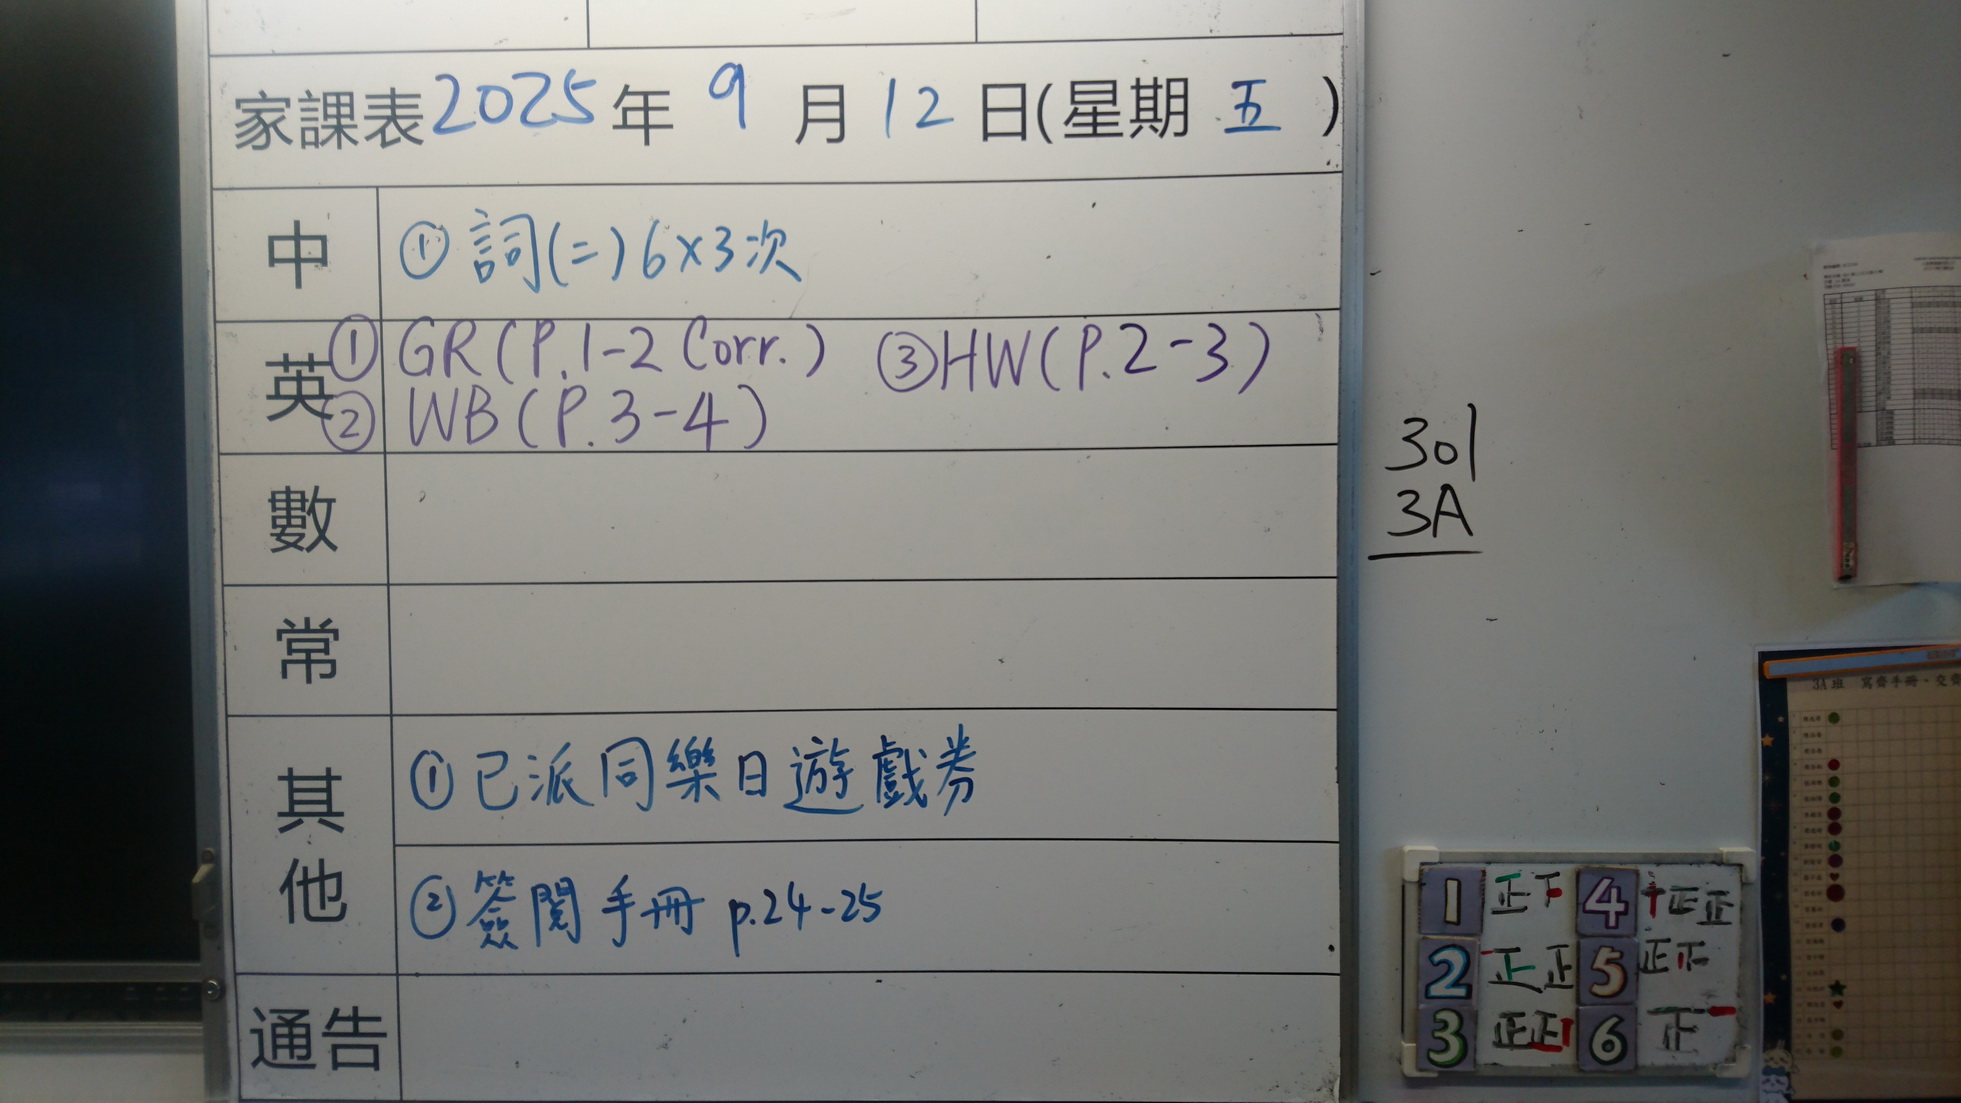 家課表2025年 9月12日(星期五)
中 ①詞(二)6×3次
英 ①GR(P.1-2 Corr.) ③HW(P.2-3)
②WB(P.3-4)
數
常
其他 ①已派同樂日遊戲券
②簽閱手冊 p.24-25
通告
301
3A
3A班
1 正下 4 正正
2 正正 5 正
3 正正 6 正